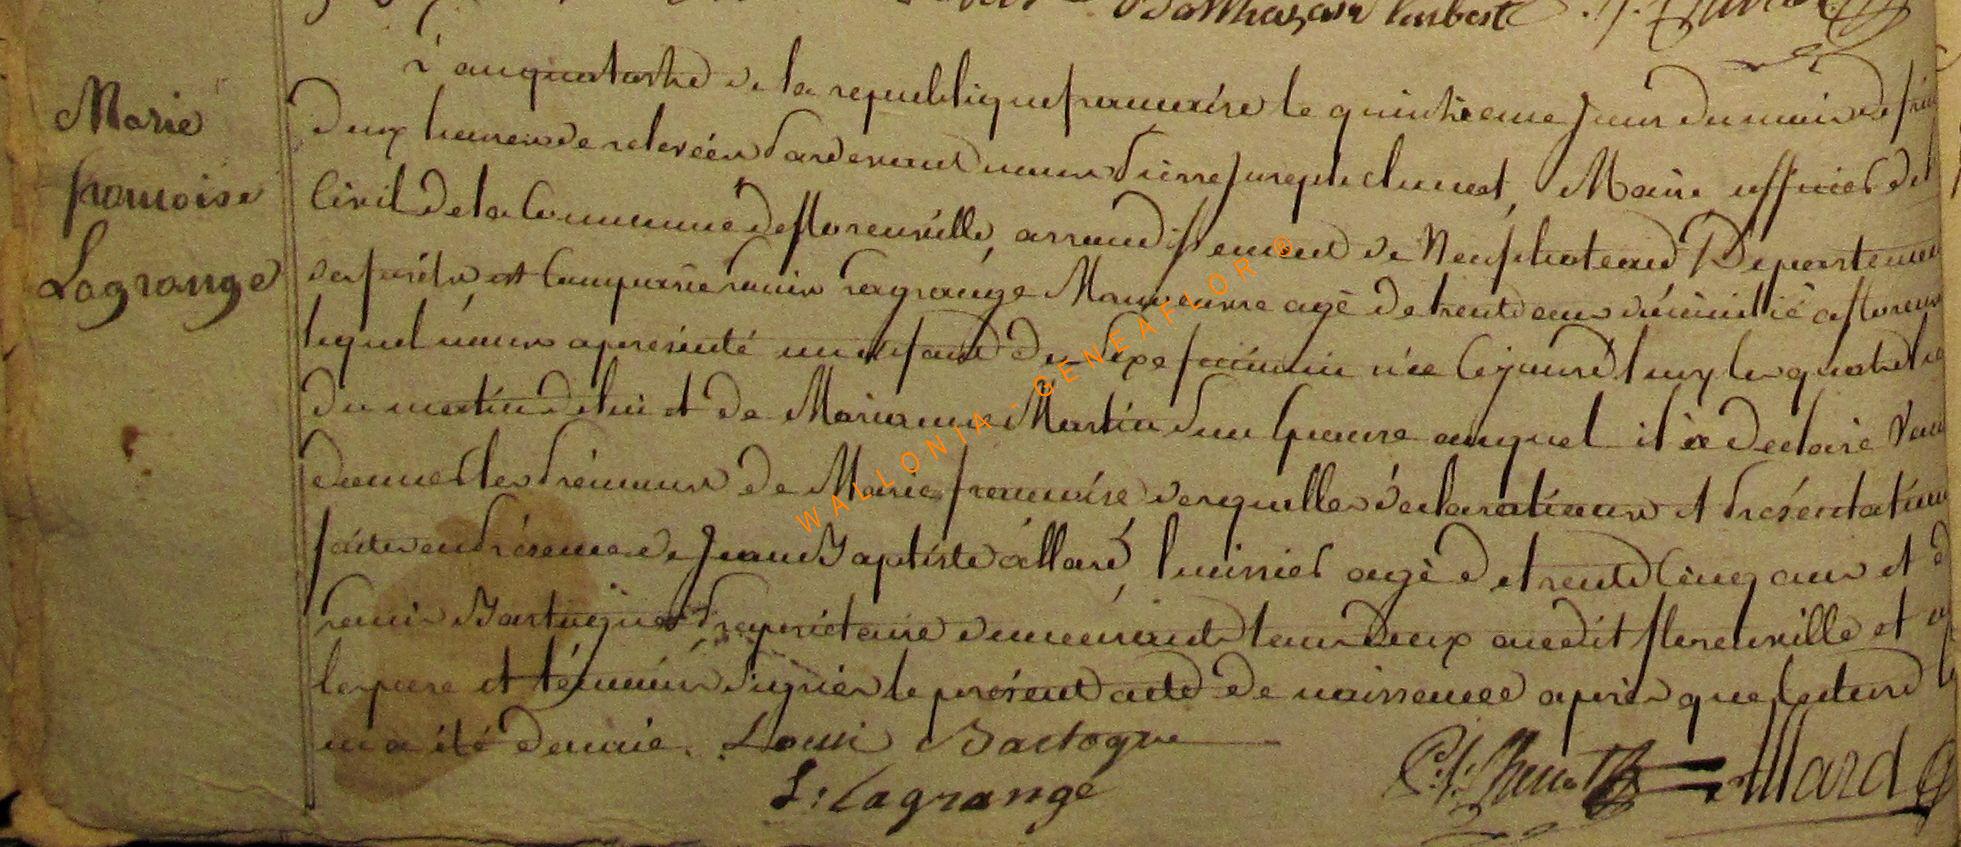 Balthazar Lambert
Marie
francoise
Lagrange
L'an quatorze de la republique francaise le quinzieme jour du mois de fri
deux heures de relevée pardevant nous pierre joseph Maire officier de l
Civil de la Commune de florenville, arrondissement de Neufchateau Departemen
des forêts est comparu Louis Lagrange Manoeuvre agé de trente ans domicilié a floren
lequel nous a presenté un enfant du sexe feminin née cejourd'huy les quatre he
du matin de lui et de Marianne Martin son epouse auquel il a declaré vou
donner les prénoms de Marie francoise lesquelles declarations et présentation
faites en présence de Jean Baptiste allard, huissier agé de trente cinq ans et d
Louis Bastogne propriétaire demeurants tous deux audit florenville et
les pere et témoins signés le présent acte de naissance après que lecture
en a été donnée. Louis Bastogne
L: Lagrange
Allard
WALLONIA - GENEAFLOR ®